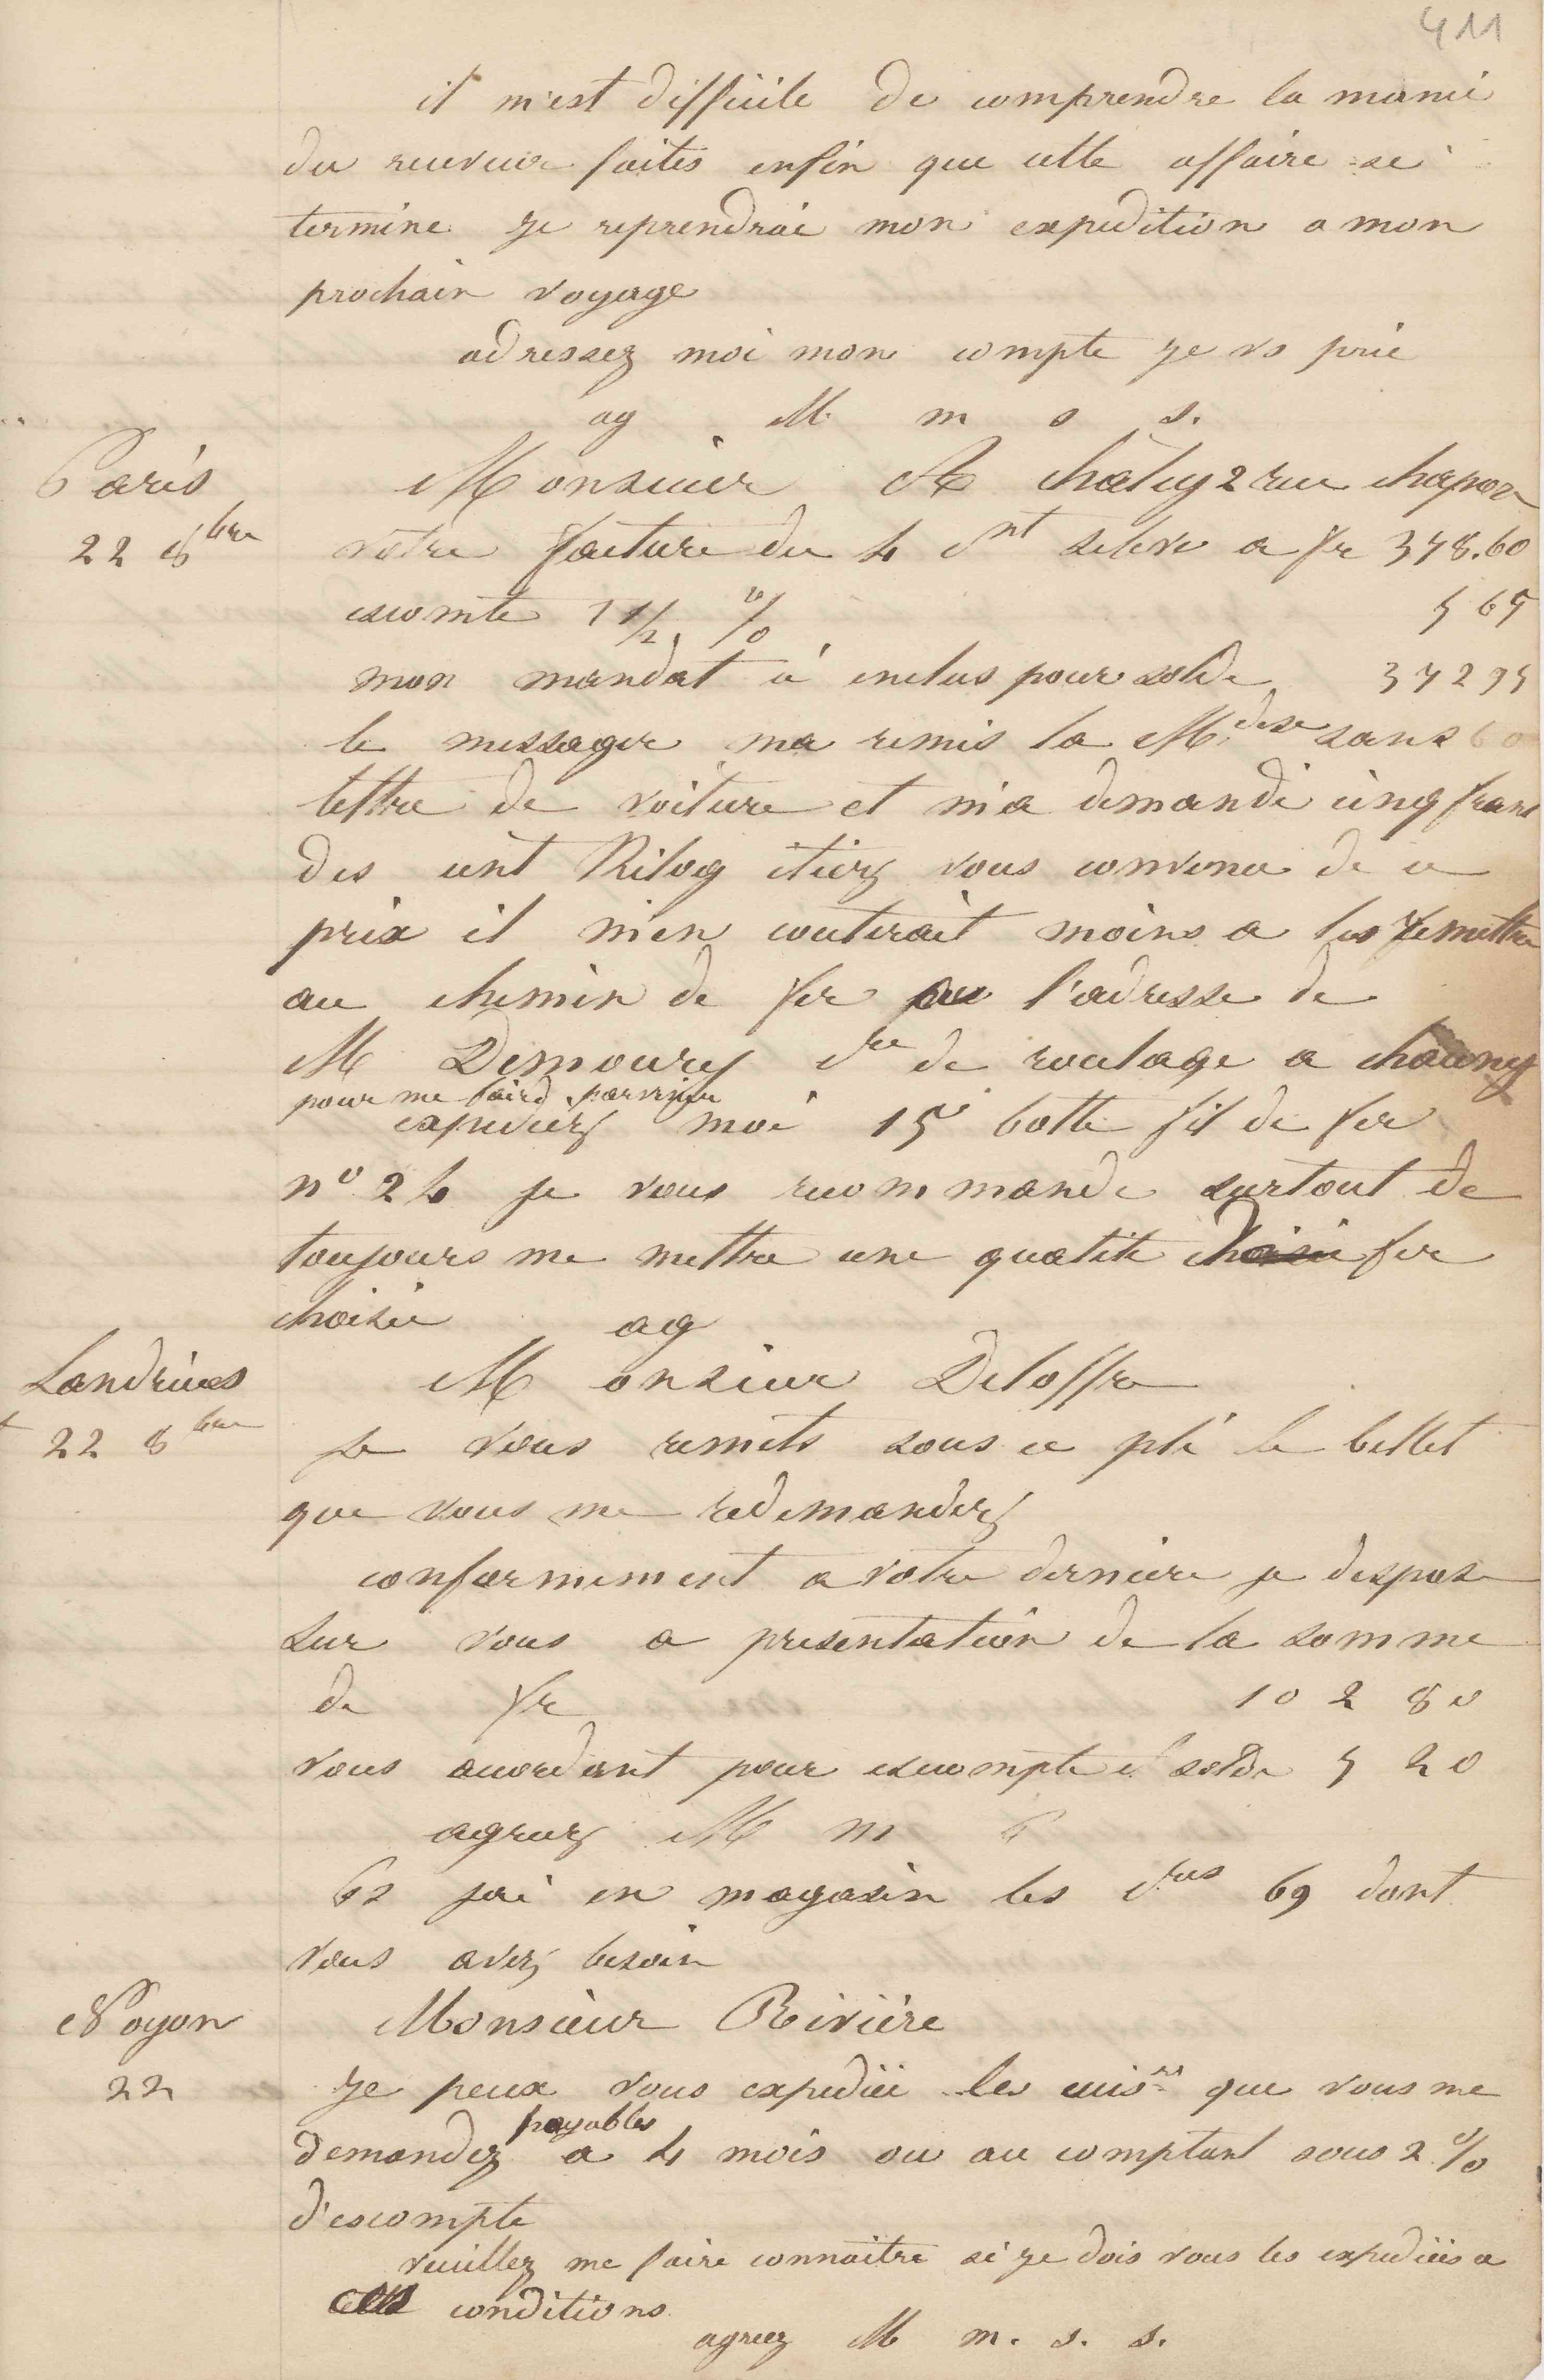 411
il m'est difficile de comprendre la manie
du receveur faites enfin que cette affaire se
termine je reprendrai mon expedition a mon
prochain voyage
adressez moi mon compte je vs prie
ag M m s s.
Paris
22 8bre
Monsieur A Chately 2 rue chapon
votre facture du 4 Cnt seleve a fr 378.60
escomte 1 1/2 % 5 65
mon mandat ci enclus pour solde 372 95
le messager ma remis la Mdise sans
lettre de voiture et m'a demandé cinq franc
des cent Kilog étiez vous convenu de ce
prix il m'en couterait moins a les remettre
au chemin de fer a l'adresse de
M Demoury Cre de roulage a chauny
pour me faire parvenir
expediez moi 15 botte fil de fer
no 24 je vous recommande surtout de
toujours me mettre une qualité choisie fer
choisie ag
Landrecies
22 8bre
Monsieur Deloffre
je vous remets sous ce pli le billet
que vous me redemandez
conformement a votre derniere je dispose
sur vous a presentation de la somme
de fr 102 80
vous accordant pour escompte et solde 5 20
agreez M m
Ps jai en magasin les 69 dont
vous avez besoin
Noyon
22
Monsieur Rivière
je peux vous expedier les cuisres que vous me
demandez payables a 4 mois ou au comptant sous 2 %
d'escompte
veuillez me faire connaitre si je dois vous les expediés a
ces conditions
agreez M m. s. s.